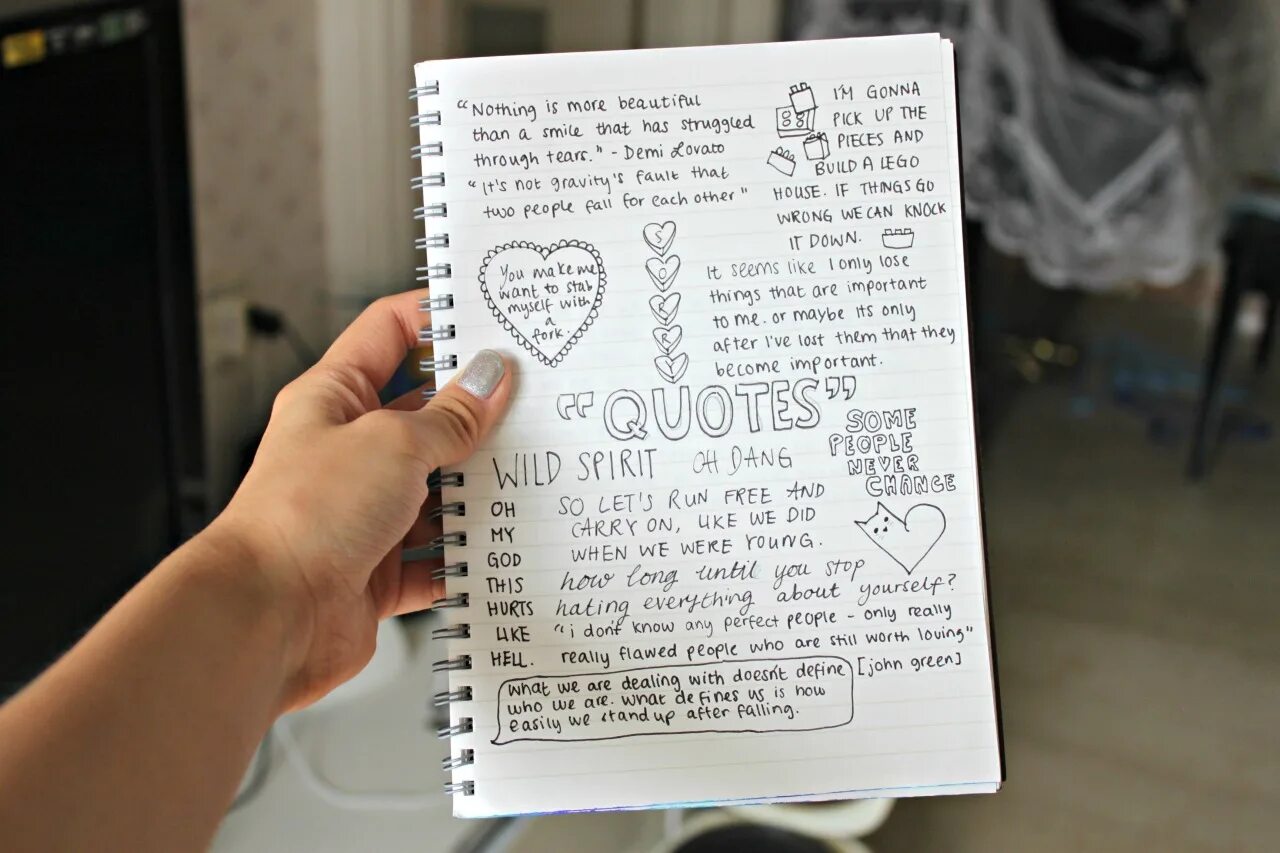 “Nothing is more beautiful
than a smile that has struggled
through tears.” - Demi Lovato
“It's not gravity's fault that
two people fall for each other”
I'M GONNA
PICK UP THE
PIECES AND
BUILD A LEGO
HOUSE. IF THINGS GO
WRONG WE CAN KNOCK
IT DOWN.
You make me
want to stab
myself with
a
fork.
S
O
R
R
Y
It seems like I only lose
things that are important
to me. or maybe its only
after I've lost them that they
become important.
“QUOTES”
SOME
PEOPLE
NEVER
CHANGE
WILD SPIRIT
OH DANG
OH
MY
GOD
THIS
HURTS
LIKE
HELL.
SO LET'S RUN FREE AND
CARRY ON, LIKE WE DID
WHEN WE WERE YOUNG.
how long until you stop
hating everything about yourself?
“i don't know any perfect people - only really
really flawed people who are still worth loving”
[john green]
what we are dealing with doesn't define
who we are. what defines us is how
easily we stand up after falling.